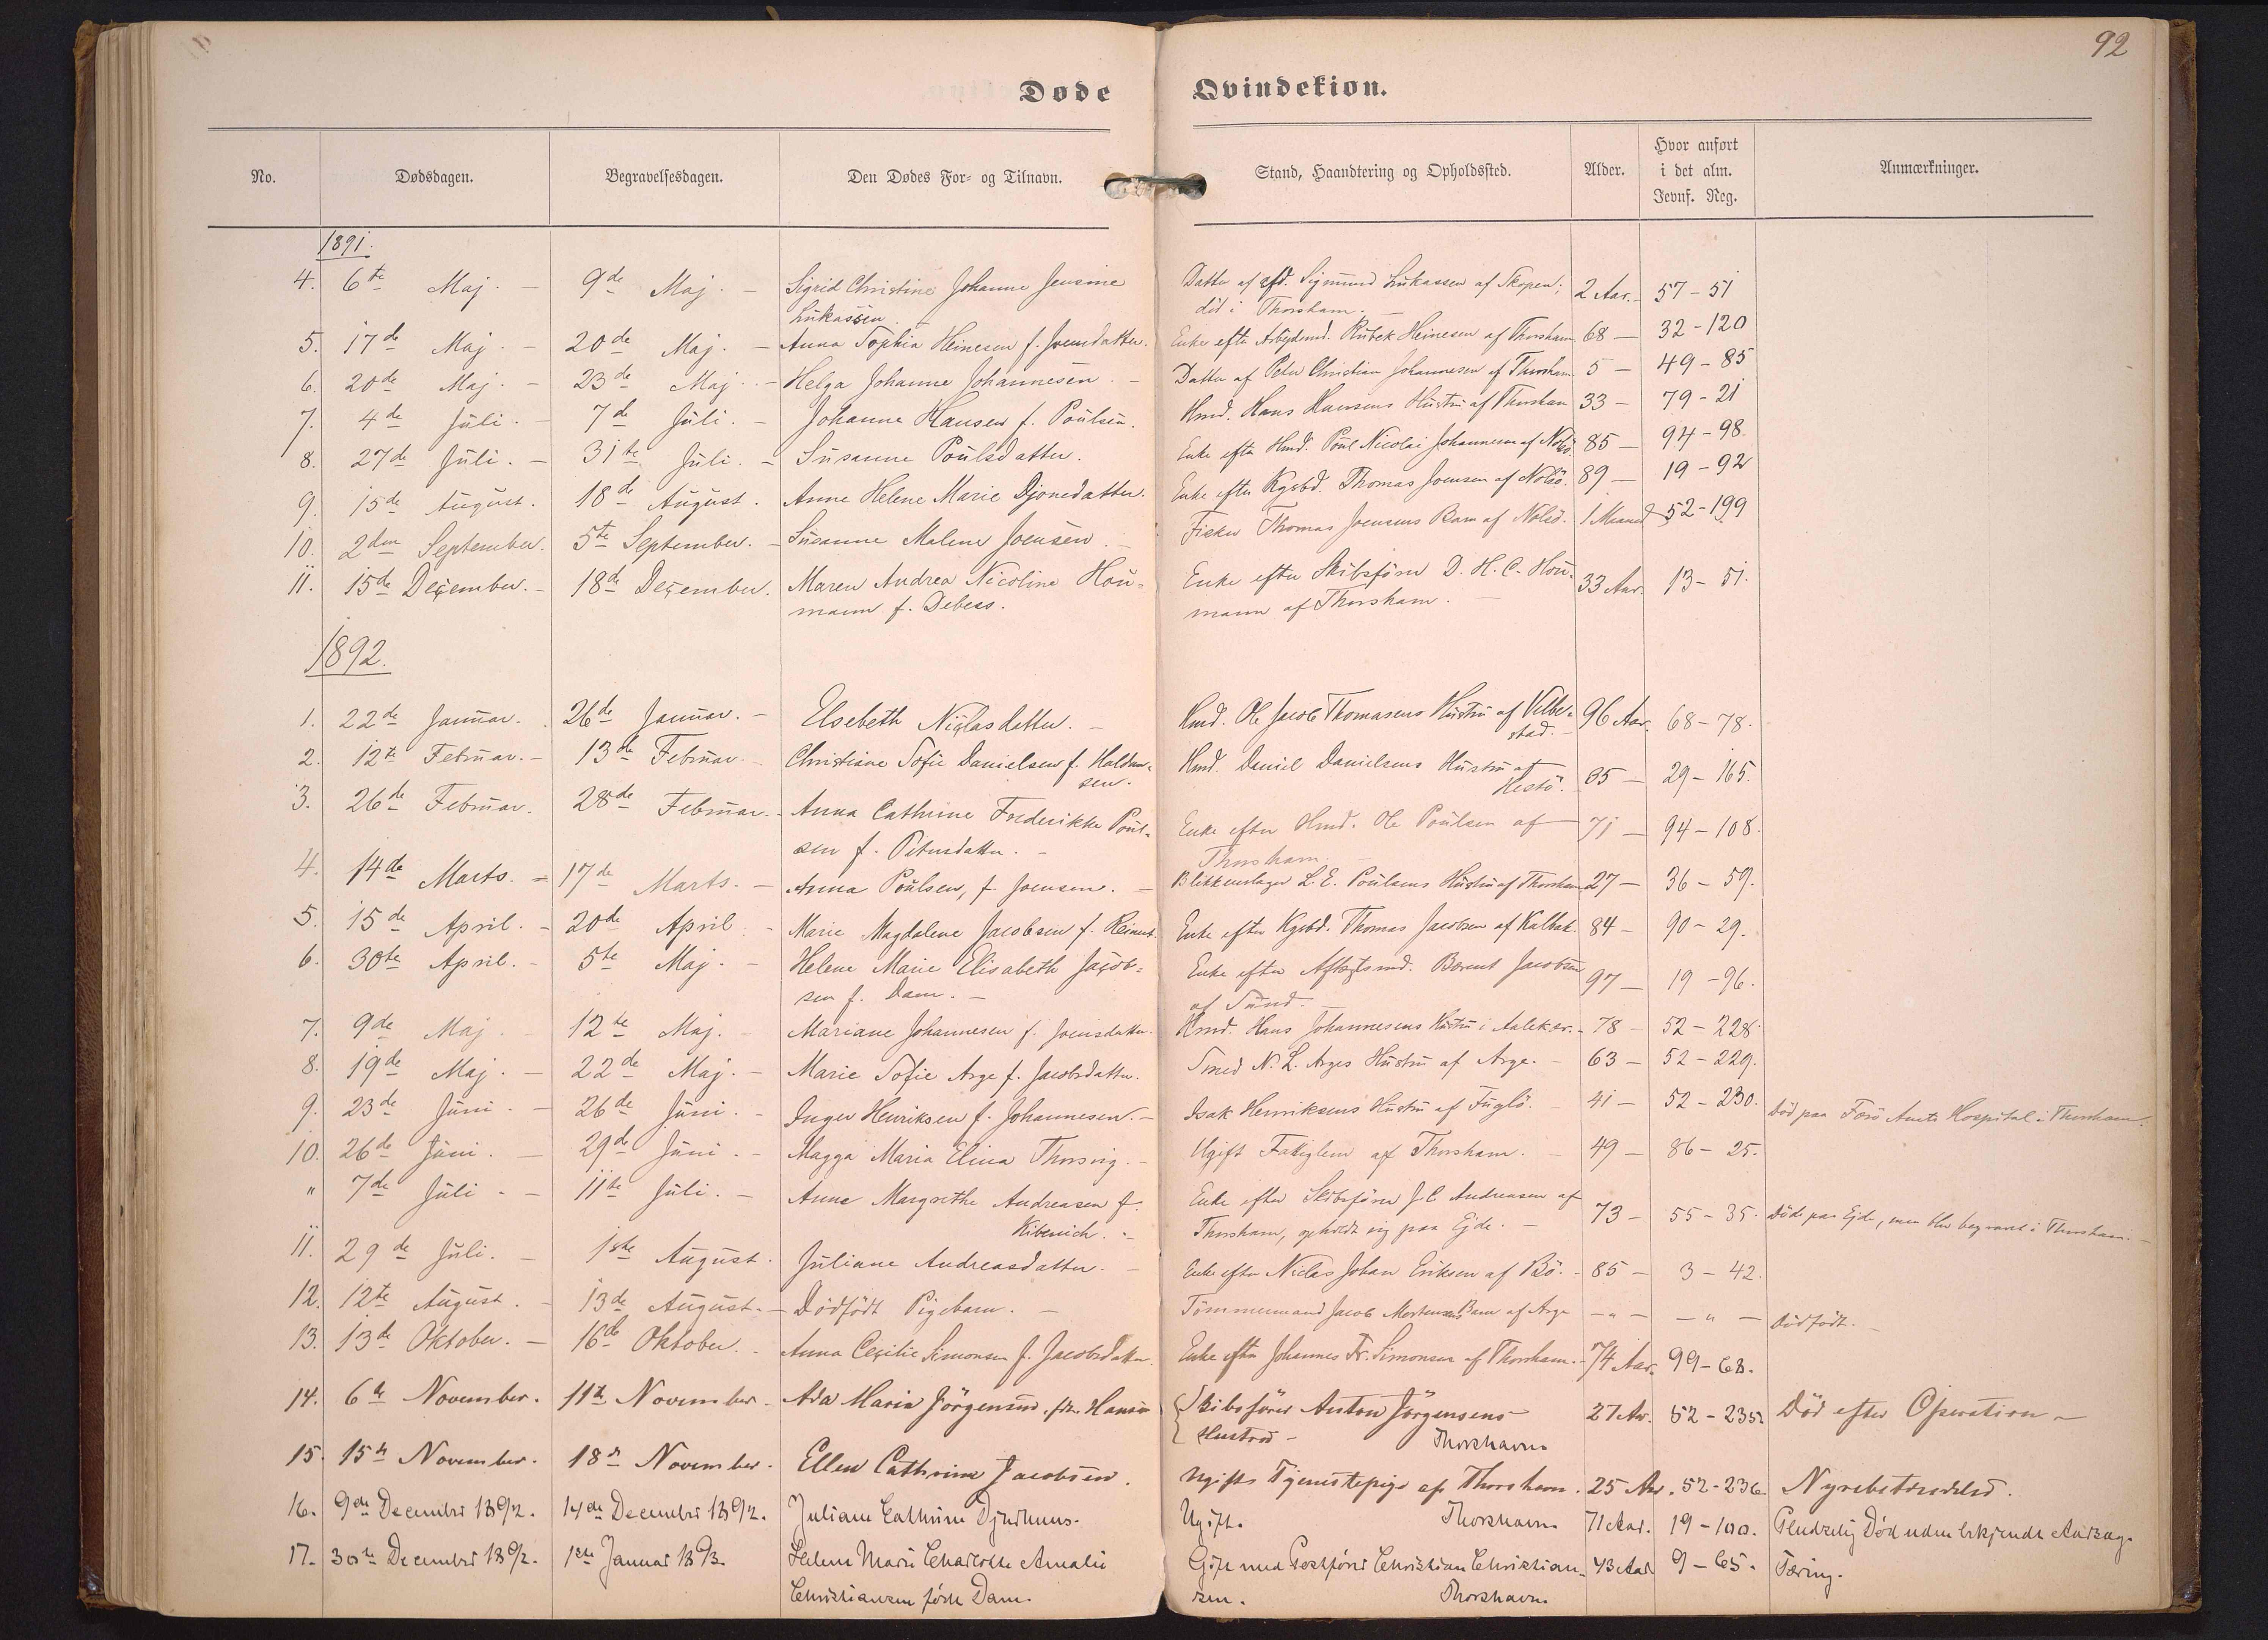 92
Døde Qvindekiøn.
No. Dødsdagen. Begravelsesdagen. Den Dødes For- og Tilnavn. Stand, Haandtering og Opholdssted. Alder. Hvor anført i det alm. Jevnf. Reg. Anmærkninger.
1891.
4. 6te Maj. – 9de Maj. – Sigrid Christine Johanne Jensine Datter af afd. Sigmund Lukassen af Skopen; 2 Aar. – 57 – 51
Lukassen. – död i Thorshavn. –
5. 17de Maj. – 20de Maj. – Anna Sophia Heinesen f. Joensdatter. Enke efter Arbejdsmd. Rubek Heinesen af Thorshavn 68 – 32 – 120
6. 20de Maj. – 23de Maj. – Helga Johanne Johannesen. – Datter af Peter Christian Johannesen af Thorshavn 5 – 49 – 85
7. 4de Juli. – 7de Juli. – Johanne Hansen f. Poulsen. Hmd. Hans Hansens Hustru af Thorshavn 33 – 79 – 21
8. 27de Juli. – 31te Juli. – Susanne Poulsdatter. Enke efter Hmd. Poul Nicolai Johannesen af Nolsö. 85 – 94 – 98.
9. 15de August. 18de August. Anne Helene Marie Djonedatter. Enke efter Kgsbd. Thomas Joensen af Nolsö. 89 – 19 – 92
10. 2den September. 5te September. – Susanne Malene Joensen. – Fisker Thomas Joensens Barn af Nolsö. 1 Maaned 52 – 199
11. 15de December. – 18de December. Maren Andrea Nicoline Hou- Enke efter Skibsförer D. H. C. Hou- 33 Aar. 13 – 51.
mann f. Debess. mann af Thorshavn. –
1892.
1. 22de Januar. 26de Januar. – Elsebeth Niclasdatter. – Hmd. Ole Jacob Thomasens Hustru af Velbe- 96 Aar. 68 – 78.
stad. –
2. 12te Februar. – 13de Februar. Christiane Sofie Danielsen f. Haldan- Hmd. Daniel Danielsens Hustru af 65 – 29 – 165.
sen. Hestö.
3. 26de Februar. 28de Februar. – Anna Cathrine Frederikke Poul- Enke efter Hmd. Ole Poulsen af 71 – 94 – 108.
sen f. Petersdatter. – Thorshavn. –
4. 14de Marts. – 17de Marts. – Anna Poulsen, f. Joensen. – Blikkenslager L. E. Poulsens Hustru af Thorshavn 27 – 36 – 59.
5. 15de April. – 20de April – Marie Magdalene Jacobsen f. Reinert. Enke efter Kgsbd. Thomas Jacobsen af Kalbak 84 – 90 – 29.
6. 30te April. – 5te Maj. – Helene Marie Elisabeth Jacob- Enke efter Aftægtsmd. Barent Jacobsen 97 – 19 – 96.
sen f. Dam. – af Sund. –
7. 9de Maj 12te Maj. Mariane Johannesen f. Joensdatter. Hmd. Hans Johannesens Hustru i Aaleker. – 78 – 52 – 228.
8. 19de Maj. – 22de Maj. – Marie Sofie Arge f. Jacobsdatter. Smed N. L. Arges Hustru af Arge. – 63 – 52 – 229.
9. 23de Juni. – 26de Juni. – Inger Henriksen f. Johannesen. – Isak Henriksens Hustru af Fuglö. 41 – 52 – 230. Död paa Færö Amts Hospital i Thorshavn.
10. 26de Juni. – 29de Juni. – Magga Maria Elina Thorsvig. – Ugift Fattiglem af Thorshavn. – 49 – 86 – 25.
" 7de Juli. – 11te Juli. – Anne Margrethe Andreasen f. Enke efter Skibsförer J. C. Andreasen af 73 – 55 – 35. Döde paa Ejde, men blev begravet i Thorshavn. –
Kibenich. – Thorshavn, opholdt sig paa Ejde. –
11. 29de Juli. – 1ste August. Juliane Andreasdatter. – Enke efter Niclas Johan Eriksen af Bö. – 85 – 3 – 42.
12. 12te August. – 13de August. – Dödfödt Pigebarn. – Tömmermand Jacob Mortensens Barn af Arge – " – – " – Dödfödt. –
13. 13de Oktober. – 16de Oktober. – Anna Cecilie Simonsen f. Jacobsdatter. Enke efter Johannes Fr. Simonsen af Thorshavn. – 74 Aar. 99 – 68.
14. 6te November. 11te November. Ada Maria Jörgensen, fdt. Hansen Skibsförer Anton Jörgensens 27 Aar. 52 – 235. Död efter Operation –
Hustru – Thorshavn
15. 15de November. 18de November. Ellen Cathrine Jacobsen. Ugift Tjenestepige af Thorshavn. 25 Aar. 52 – 236. Nyrebetændelse.
16. 9de December 1892. 14de December 1892. Juliane Cathrine Djurhuus. Ugift. Thorshavn 71 Aar. 19 – 100. Pludselig Död uden bekjendt Aarsag.
17. 30te December 1892. 1ste Januar 1893. Helene Marie Charlotte Amalie Gift med Postförer Christian Christian- 43 Aar 9 – 65. Tæring.
Christiansen född Dam. sen. Thorshavn.